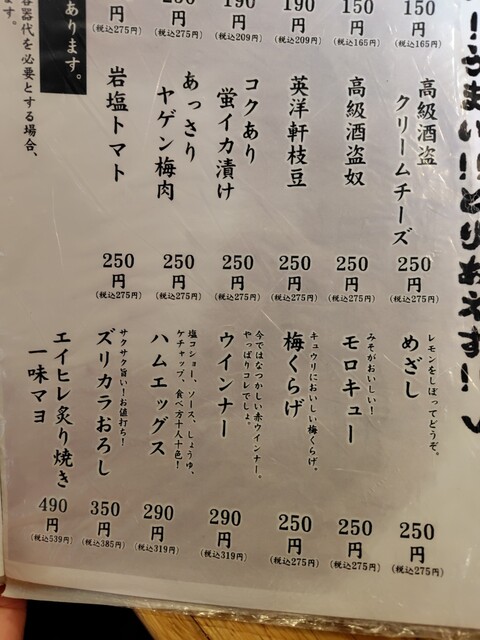 ！うまい！！とりあえず！！
150
円
(税込165円)
150
円
(税込165円)
190
円
(税込209円)
190
円
(税込209円)
250
円
(税込275円)
円
(税込275円)
あります。
容器代を必要とする場合、
ます。
高級酒盗
クリームチーズ
250
円
(税込275円)
高級酒盗奴
250
円
(税込275円)
英洋軒枝豆
250
円
(税込275円)
コクあり
蛍イカ漬け
250
円
(税込275円)
あっさり
ヤゲン梅肉
250
円
(税込275円)
岩塩トマト
250
円
(税込275円)
レモンをしぼってどうぞ。
めざし
250
円
(税込275円)
みそがおいしい！
モロキュー
250
円
(税込275円)
キュウリにおいしい梅くらげ。
梅くらげ
250
円
(税込275円)
今ではなつかしい赤ウインナー。
やっぱりコレでしょ。
ウインナー
290
円
(税込319円)
塩コショー、ソース、しょうゆ、
ケチャップ、食べ方十人十色！
ハムエッグス
290
円
(税込319円)
サクサク旨い！お値打ち！
ズリカラおろし
350
円
(税込385円)
エイヒレ炙り焼き
一味マヨ
490
円
(税込539円)